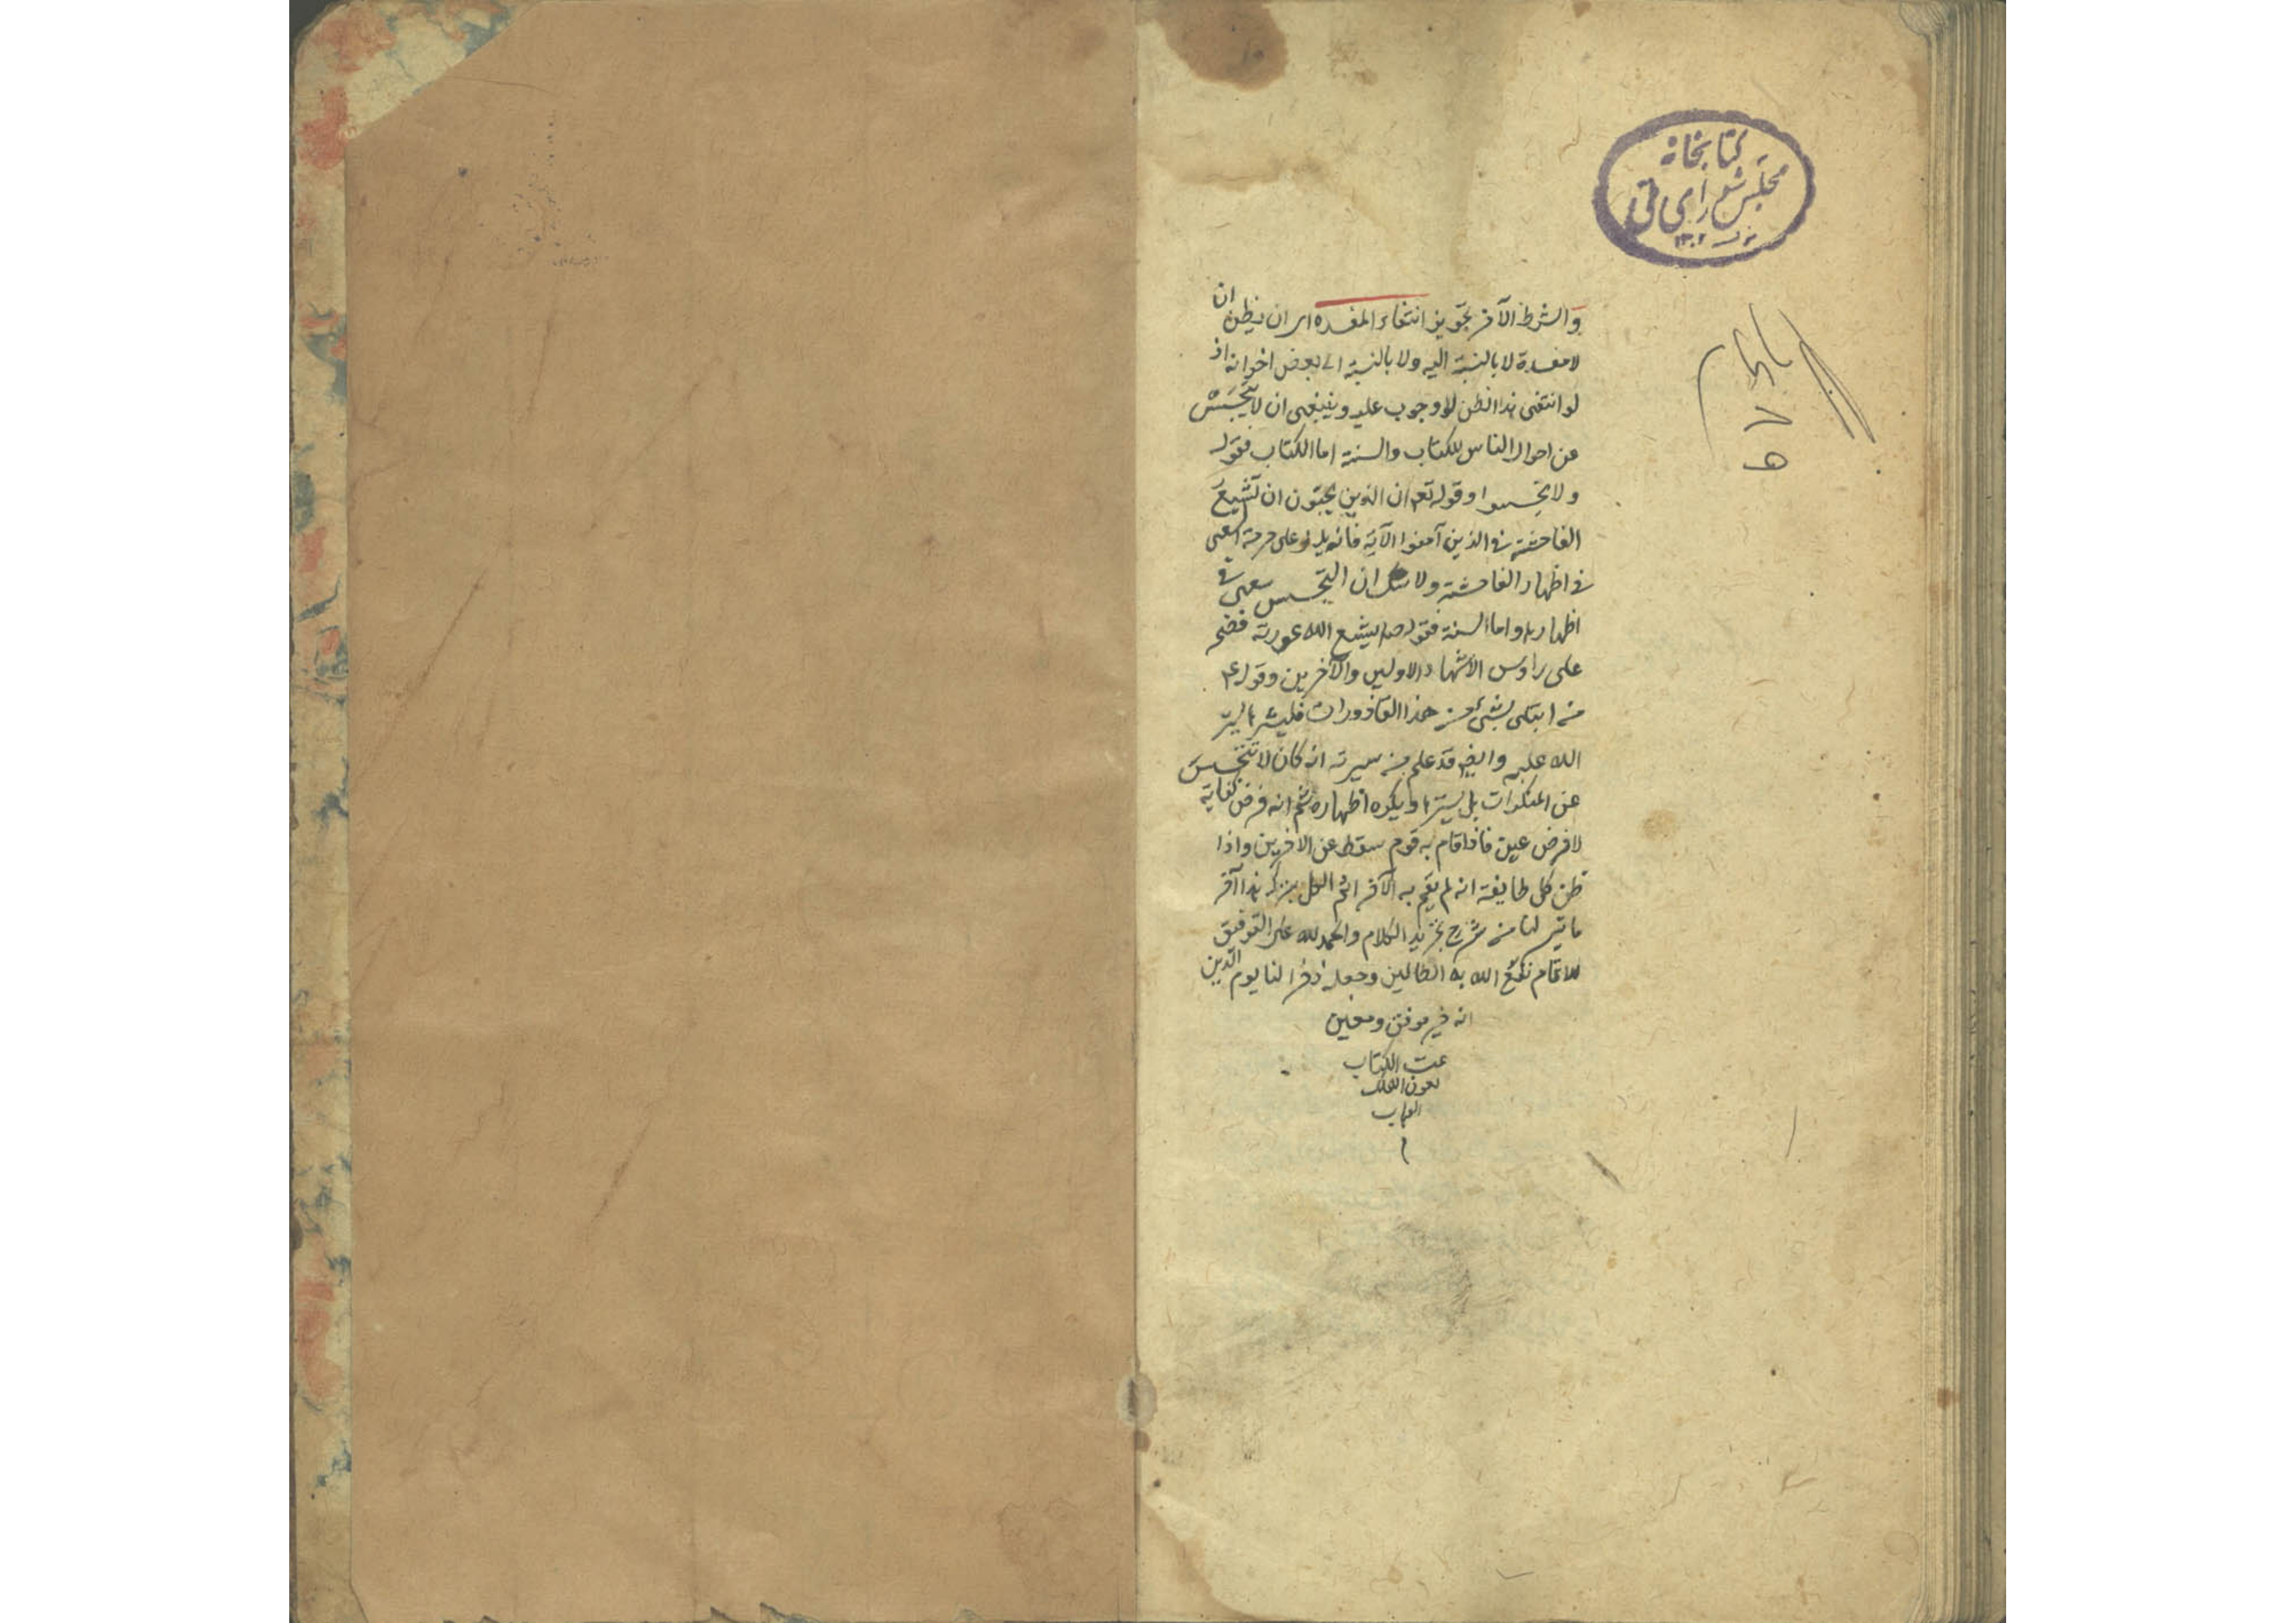 كتابخانه
مجلس شورای ملی
۱۳۰۲
والشرط الآخر تجويز انتفاء المفسده اى ان يظن ان
لا مفسدة لا بالنسبة اليه ولا بالنسبة الى بعض اخوانه اذ
لو انتفى هذا الظن لا وجوب عليه وينبغى ان لا يتجسس
عن احوال الناس للكتاب والسنة اما الكتاب فقوله
ولا تجسسوا وقوله تعم ان الذين يحبون ان تشيع
الفاحشة فى الذين آمنوا الآية فانه يدل على حرمة السعى
فى اظهار الفاحشة ولا شك ان التجسس سعى فى
اظهارها واما السنة فقوله الله عورته فضحه
على راوس الاشهاد الاولين والآخرين وقوله ع
من ابتلى بشئ من هذا القاذورات فليسترها
الله عليه وايض قد علم من سيرته انه كان لا يتجسس
عن المنكرات بل يسترها ويكره اظهاره ثم انه فرض كفاية
لا فرض عين فاذا قام به قوم سقط عن الاخرين واذا
ظن كل طايفة انه لم يقم به الآخر اثم الكل بتركه هذا آخر
ما تيسر لنا من شرح تجريد الكلام والحمد لله على التوفيق
للاتمام نفع الله به الطالبين وجعله ذخرا لنا يوم الدين
انه خير موفق ومعين
تمت الكتاب
بعون الملك
الوهاب